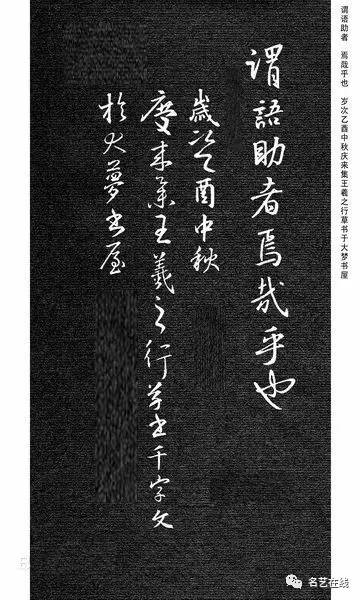 谓语助者 焉哉乎也 岁次乙酉中秋庆来集王羲之行草书于大梦书屋
謂語助者焉哉乎也
歲次乙酉中秋
慶来集王羲之行草书千字文
於大夢书屋
名艺在线